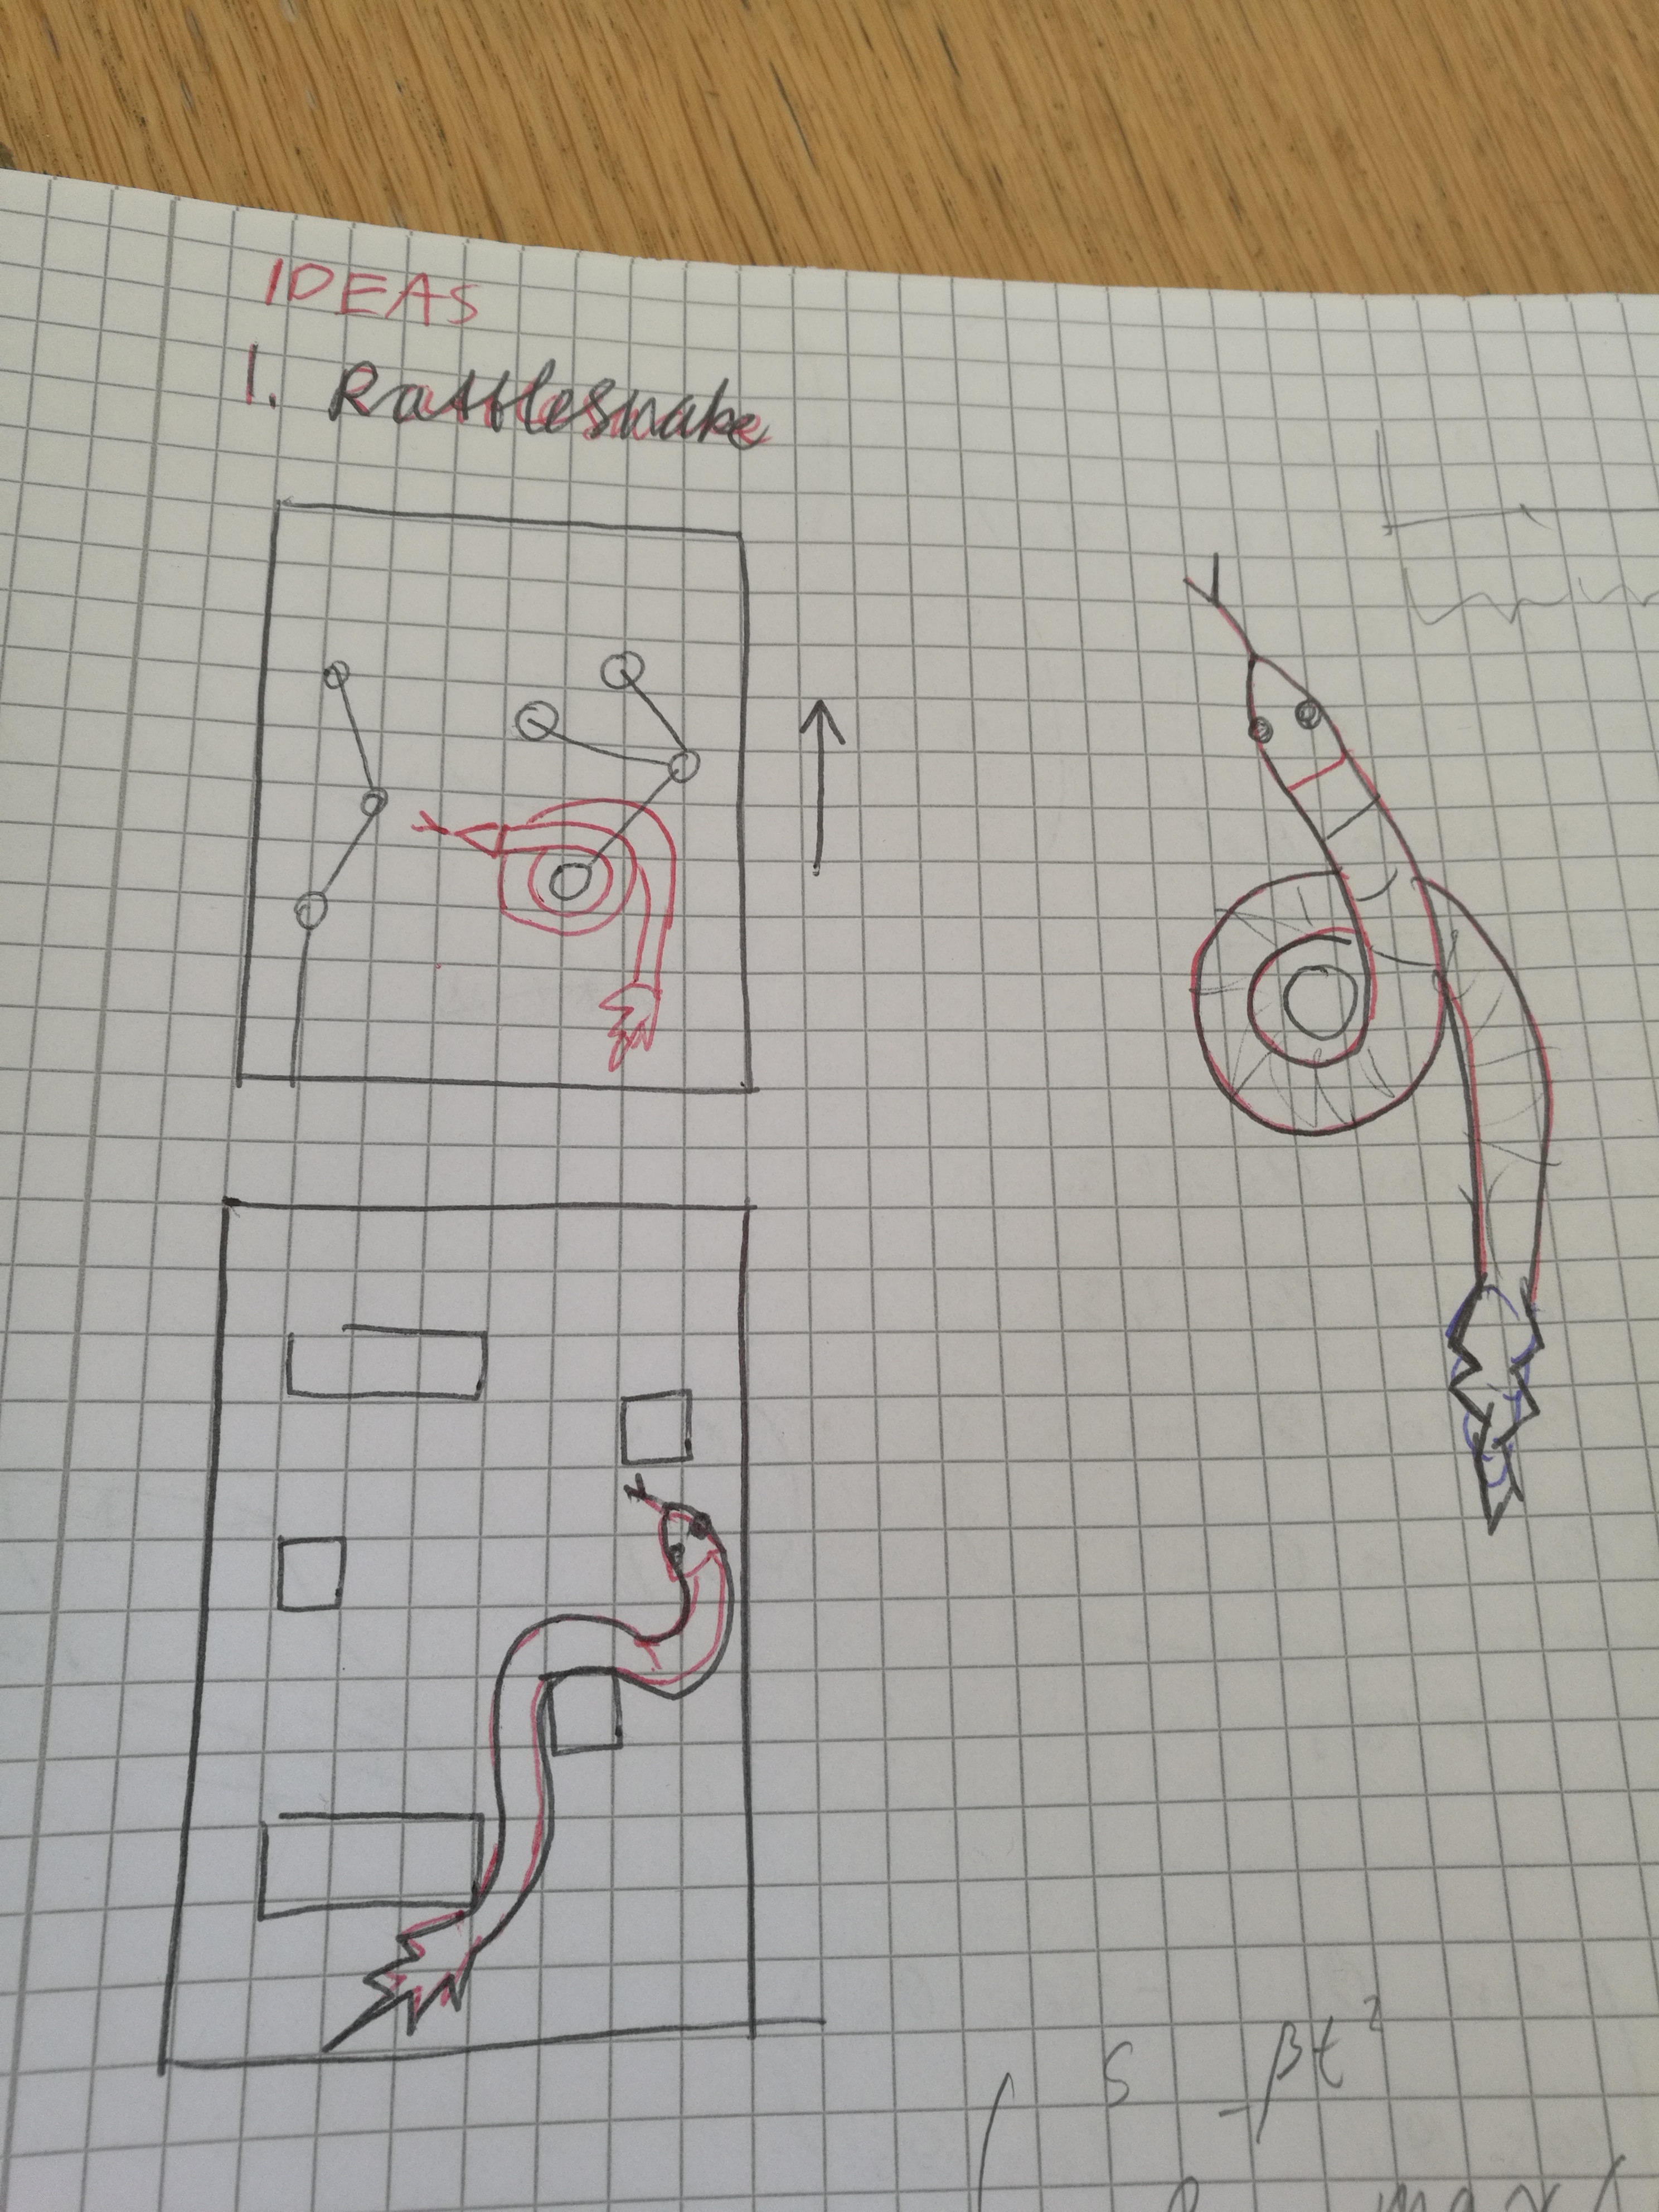 IDEAS
1. Rattlesnake
S -βt²